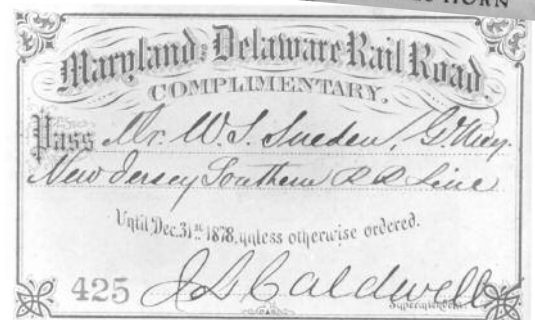 HORN
Maryland & Delaware Rail Road.
COMPLIMENTARY.
Pass Mr. W. S. Sneden, G.
New Jersey Southern R R Line
Until Dec. 31st 1878, unless otherwise ordered.
425 Caldwell
Superintendent.